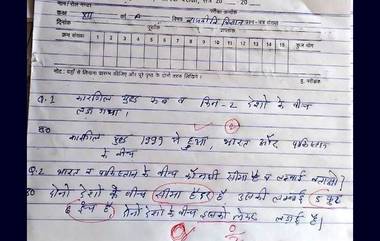 20 20
दिनांक विषय राजनीति विज्ञान
प्रश्न संख्या 1 2 3 4 5 6 7 8 9 10 11 12 13 14 15 कुल योग
नोट : यहाँ से लिखना प्रारम्भ कीजिए और पूरे पृष्ठ के दोनों तरफ लिखिये।
Q.1 कारगिल युद्ध कब व किन-2 देशों के बीच
लड़ा गया।
उ० कारगिल युद्ध 1999 में हुआ, भारत और पाकिस्तान
के बीच
Q.2 भारत व पाकिस्तान के बीच कौनसी सीमा है व लम्बाई बताओ?
उ० दोनों देशों के बीच सीमा हैदर है उसकी लम्बाई 5 फुट
6 इंच है। दोनों देशों के बीच इसको लेकर लड़ाई है।